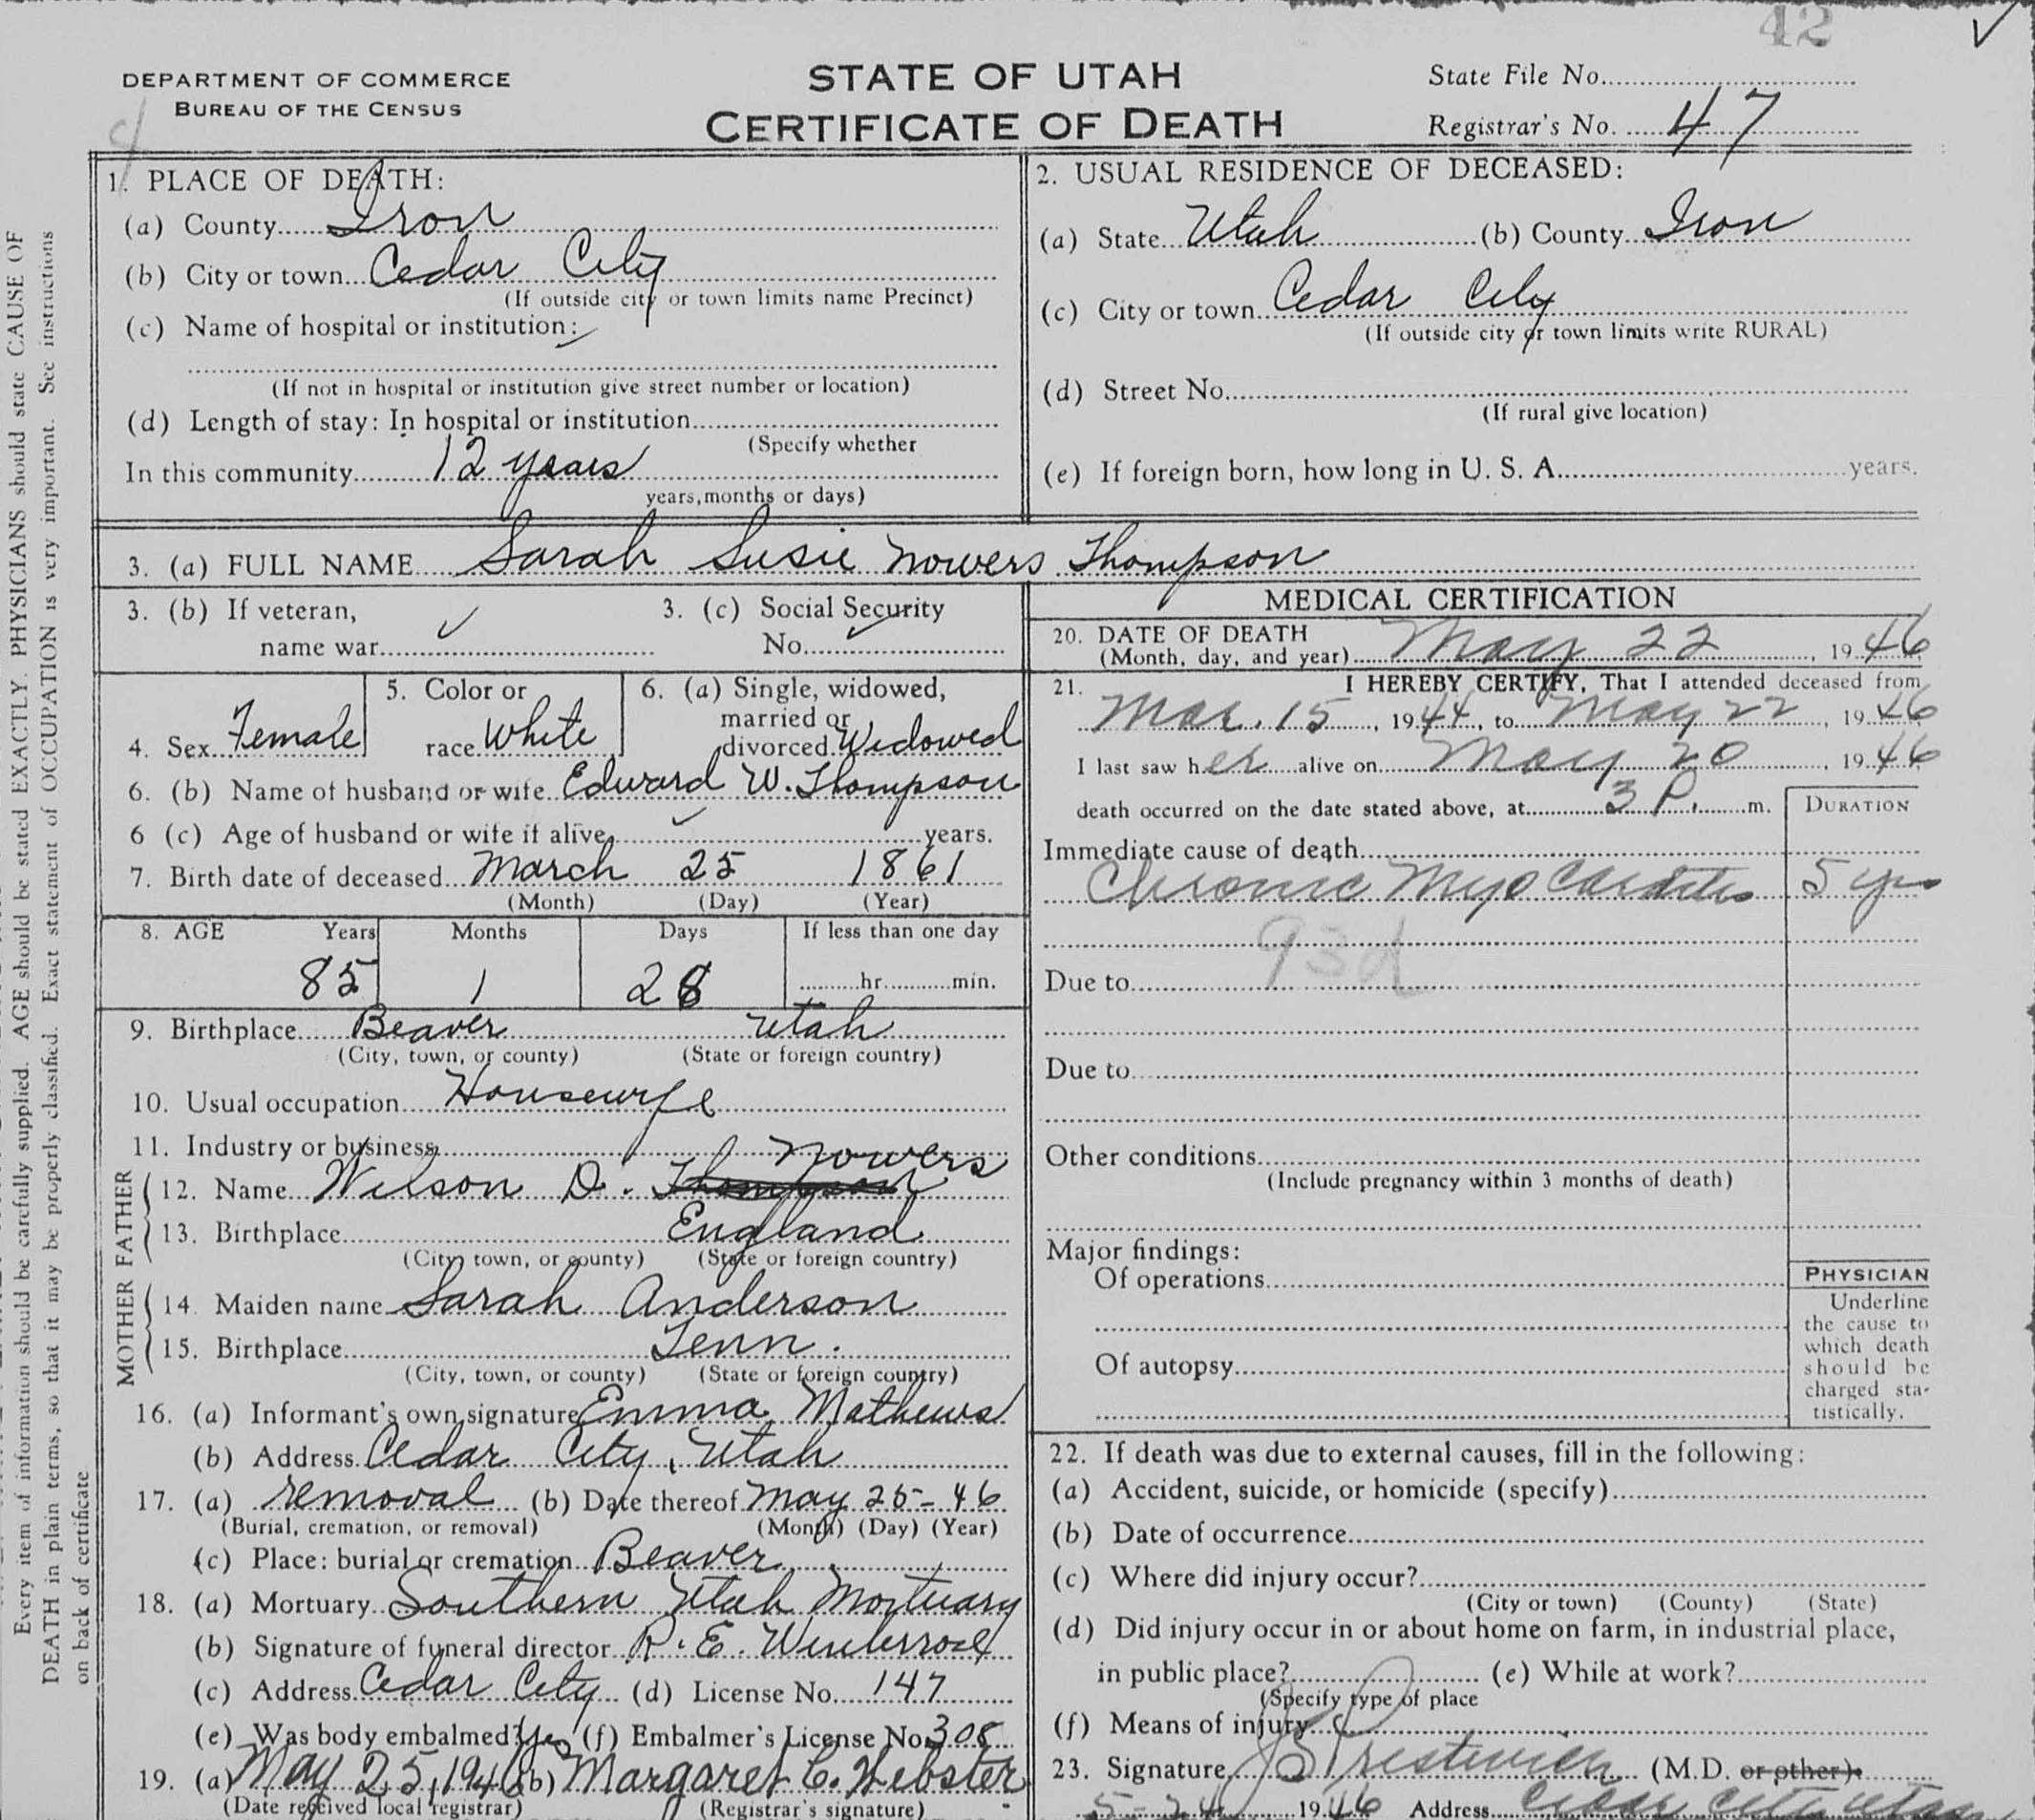 42
DEPARTMENT OF COMMERCE
BUREAU OF THE CENSUS
STATE OF UTAH
CERTIFICATE OF DEATH
State File No.
Registrar's No. 47
1. PLACE OF DEATH:
(a) County Iron
(b) City or town Cedar City
(If outside city or town limits name Precinct)
(c) Name of hospital or institution:
(If not in hospital or institution give street number or location)
(d) Length of stay: In hospital or institution
(Specify whether
In this community 12 years
years, months or days)
2. USUAL RESIDENCE OF DECEASED:
(a) State Utah (b) County Iron
(c) City or town Cedar City
(If outside city or town limits write RURAL)
(d) Street No.
(If rural give location)
(e) If foreign born, how long in U. S. A. years.
3. (a) FULL NAME Sarah Susie Nowers Thompson
3. (b) If veteran,
name war
3. (c) Social Security
No.
4. Sex Female
5. Color or
race White
6. (a) Single, widowed,
married or
divorced Widowed
6. (b) Name of husband or wife Edward W. Thompson
6 (c) Age of husband or wife if alive years.
7. Birth date of deceased March 25 1861
(Month) (Day) (Year)
8. AGE Years Months Days If less than one day
85 1 28 hr. min.
9. Birthplace Beaver Utah
(City, town, or county) (State or foreign country)
10. Usual occupation Housewife
11. Industry or business
FATHER
Nowers
12. Name Wilson D. Thompson
13. Birthplace England
(City, town, or county) (State or foreign country)
MOTHER
14. Maiden name Sarah Anderson
15. Birthplace Tenn.
(City, town, or county) (State or foreign country)
16. (a) Informant's own signature Emma Mathews
(b) Address Cedar City, Utah
17. (a) removal (b) Date thereof May 25-46
(Burial, cremation, or removal) (Month) (Day) (Year)
(c) Place: burial or cremation Beaver
18. (a) Mortuary Southern Utah Mortuary
(b) Signature of funeral director R. E. Winterrose
(c) Address Cedar City (d) License No. 147
(e) Was body embalmed? Yes (f) Embalmer's License No. 308
19. (a) May 25, 1946 (b) Margaret C. Webster
(Date received local registrar) (Registrar's signature)
MEDICAL CERTIFICATION
20. DATE OF DEATH
(Month, day, and year) May 22, 1946
21. I HEREBY CERTIFY, That I attended deceased from
Mar. 15, 1944, to May 22, 1946
I last saw her alive on May 20, 1946
death occurred on the date stated above, at 3 P. m.
DURATION
Immediate cause of death
Chronic Myocarditis 5 yrs
93d
Due to
Due to
Other conditions
(Include pregnancy within 3 months of death)
Major findings:
Of operations
Of autopsy
PHYSICIAN
Underline
the cause to
which death
should be
charged sta-
tistically.
22. If death was due to external causes, fill in the following:
(a) Accident, suicide, or homicide (specify)
(b) Date of occurrence
(c) Where did injury occur?
(City or town) (County) (State)
(d) Did injury occur in or about home on farm, in industrial place,
in public place? (e) While at work?
(Specify type of place
(f) Means of injury
23. Signature (M.D. or other)
5-24 1946 Address Cedar City Utah
Every item of information should be carefully supplied. AGE should be stated EXACTLY. PHYSICIANS should state CAUSE OF
DEATH in plain terms, so that it may be properly classified. Exact statement of OCCUPATION is very important. See instructions
on back of certificate